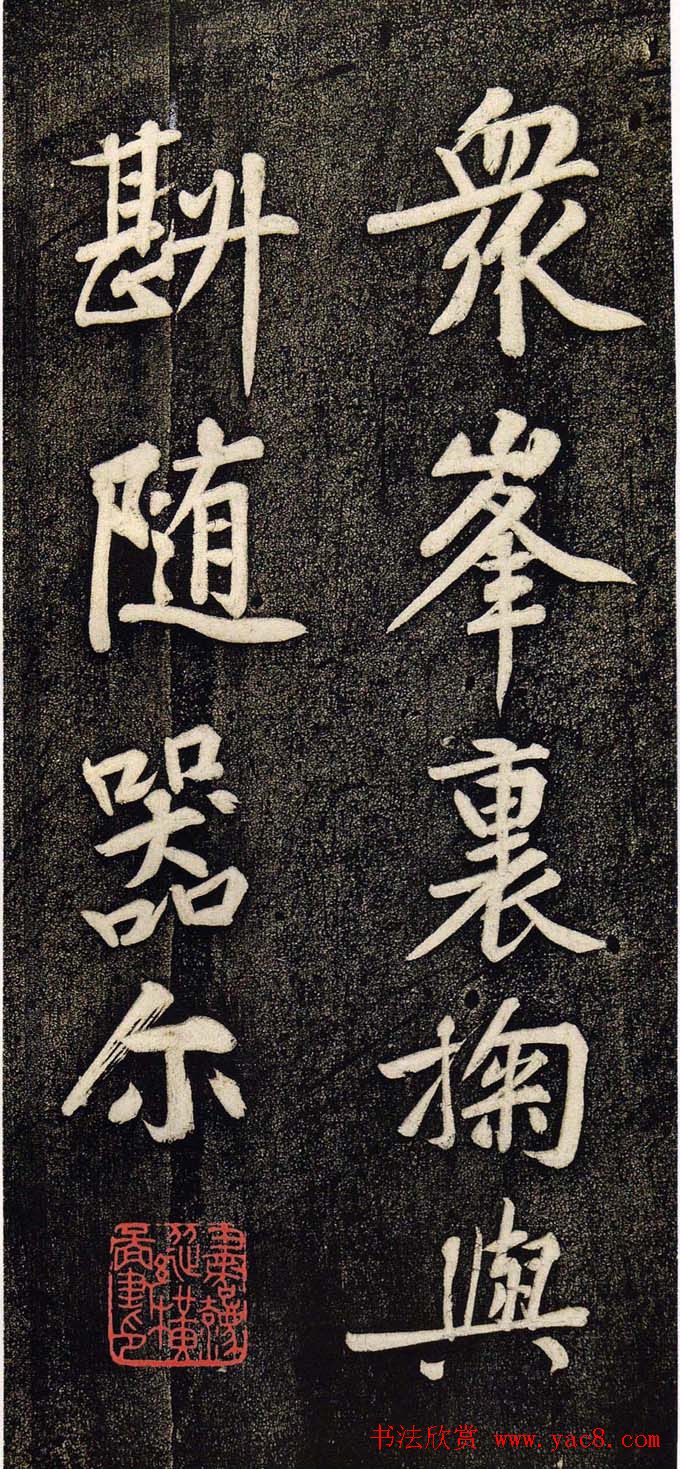 眾峯裏掬與
斟随器尔
书法欣赏 www.yac8.com